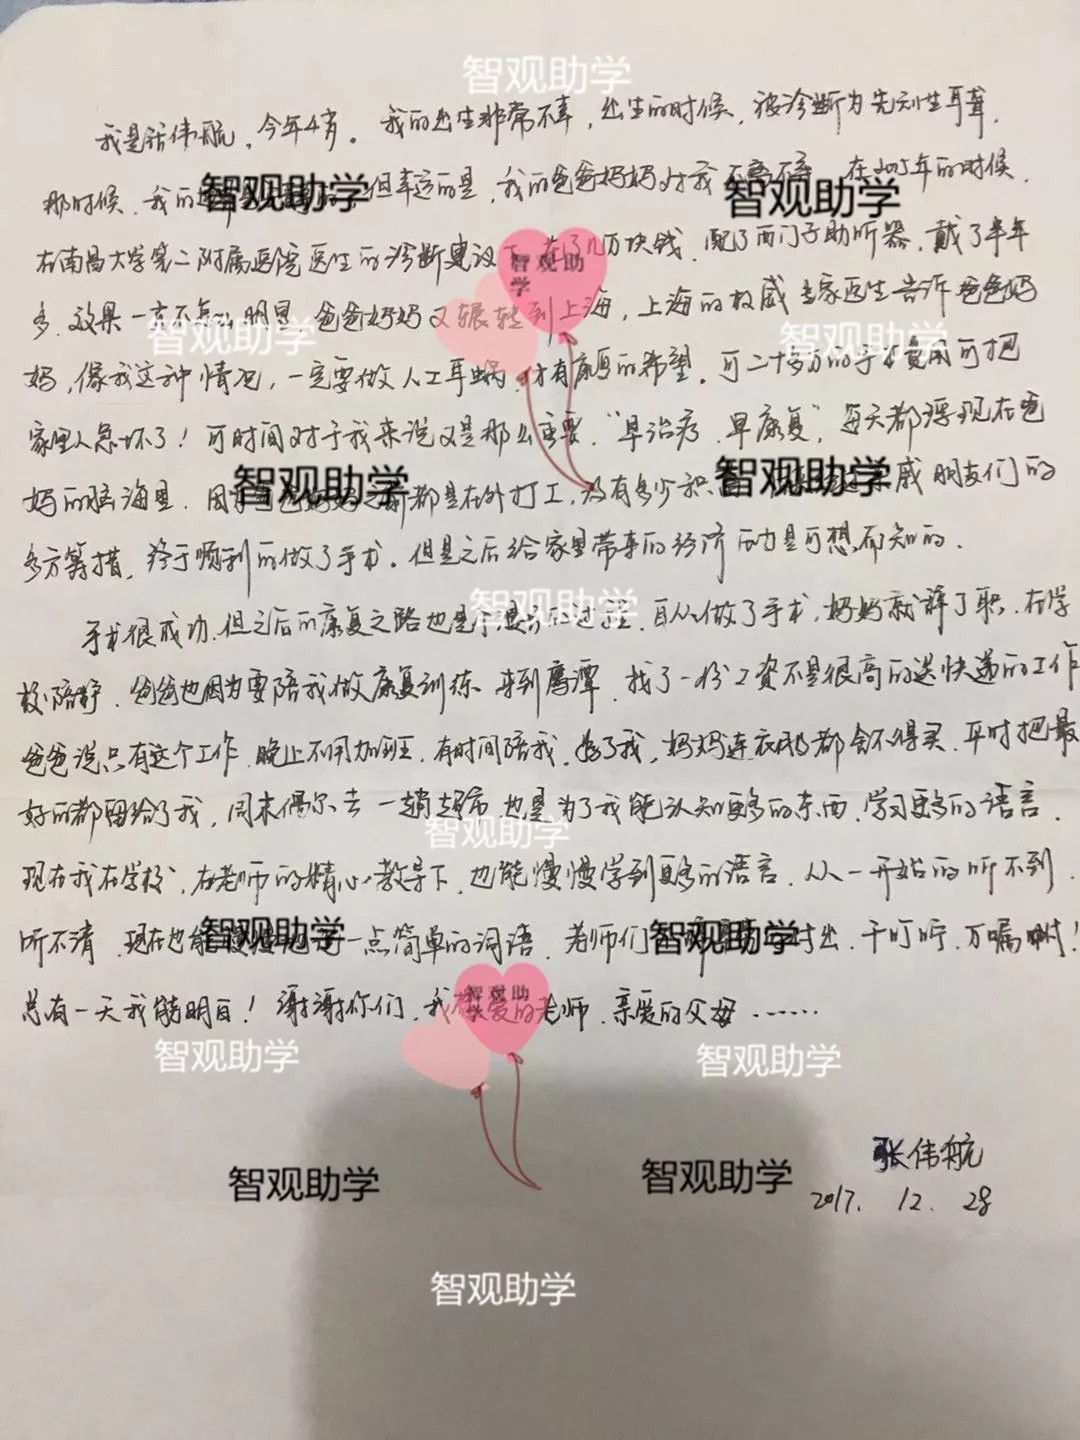 智观助学
我是张伟航，今年4岁。我的出生非常不幸，出生的时候，被诊断为先天性耳聋，
那时候，我的 智观助学 但幸运的是，我的爸爸妈妈对我不离不弃 智观助学 在2015年的时候，
在南昌大学第二附属医院医生的诊断建议下，花了几万块钱，配了西门子助听器，戴了半年
智观助学
多，效果一直不怎么明显，爸爸妈妈又辗转到上海，上海的权威专家医生告诉爸爸妈
智观助学 智观助学
妈，像我这种情况，一定要做人工耳蜗，才有康复的希望，可二十多万的手术费用可把
家里人急坏了！可时间对于我来说又是那么重要，“早治疗，早康复”，每天都浮现在爸
妈的脑海里，因为 都是在外打工，没有多少积 戚朋友们的
智观助学 智观助学
多方筹措，终于顺利的做了手术。但是之后给家里带来的经济压力是可想而知的。
智观助学
手术很成功，但之后的康复之路也是个漫长的过程，自从做了手术，妈妈就辞了职，在学
校陪护，爸爸也因为要陪我做康复训练，来到鹰潭，找了一份工资不是很高的送快递的工作
爸爸说只有这个工作，晚上不用加班，有时间陪我，为了我，妈妈连衣服都舍不得买，平时把最
好的都留给了我，周末偶尔去一趟超市，也是为了我能认知更多的东西，学习更多的语言，
智观助学
现在我在学校，在老师的精心教导下，也能慢慢学到更多的语言，从一开始的听不到，
听不清，现在也能 一点简单的词语，老师们 付出，千叮咛，万嘱咐！
智观助学 智观助学
总有一天我能明白！谢谢你们，我 爱的老师，亲爱的父母……
智观助学
智观助学 智观助学
张伟航
智观助学 智观助学
2017. 12. 28
智观助学